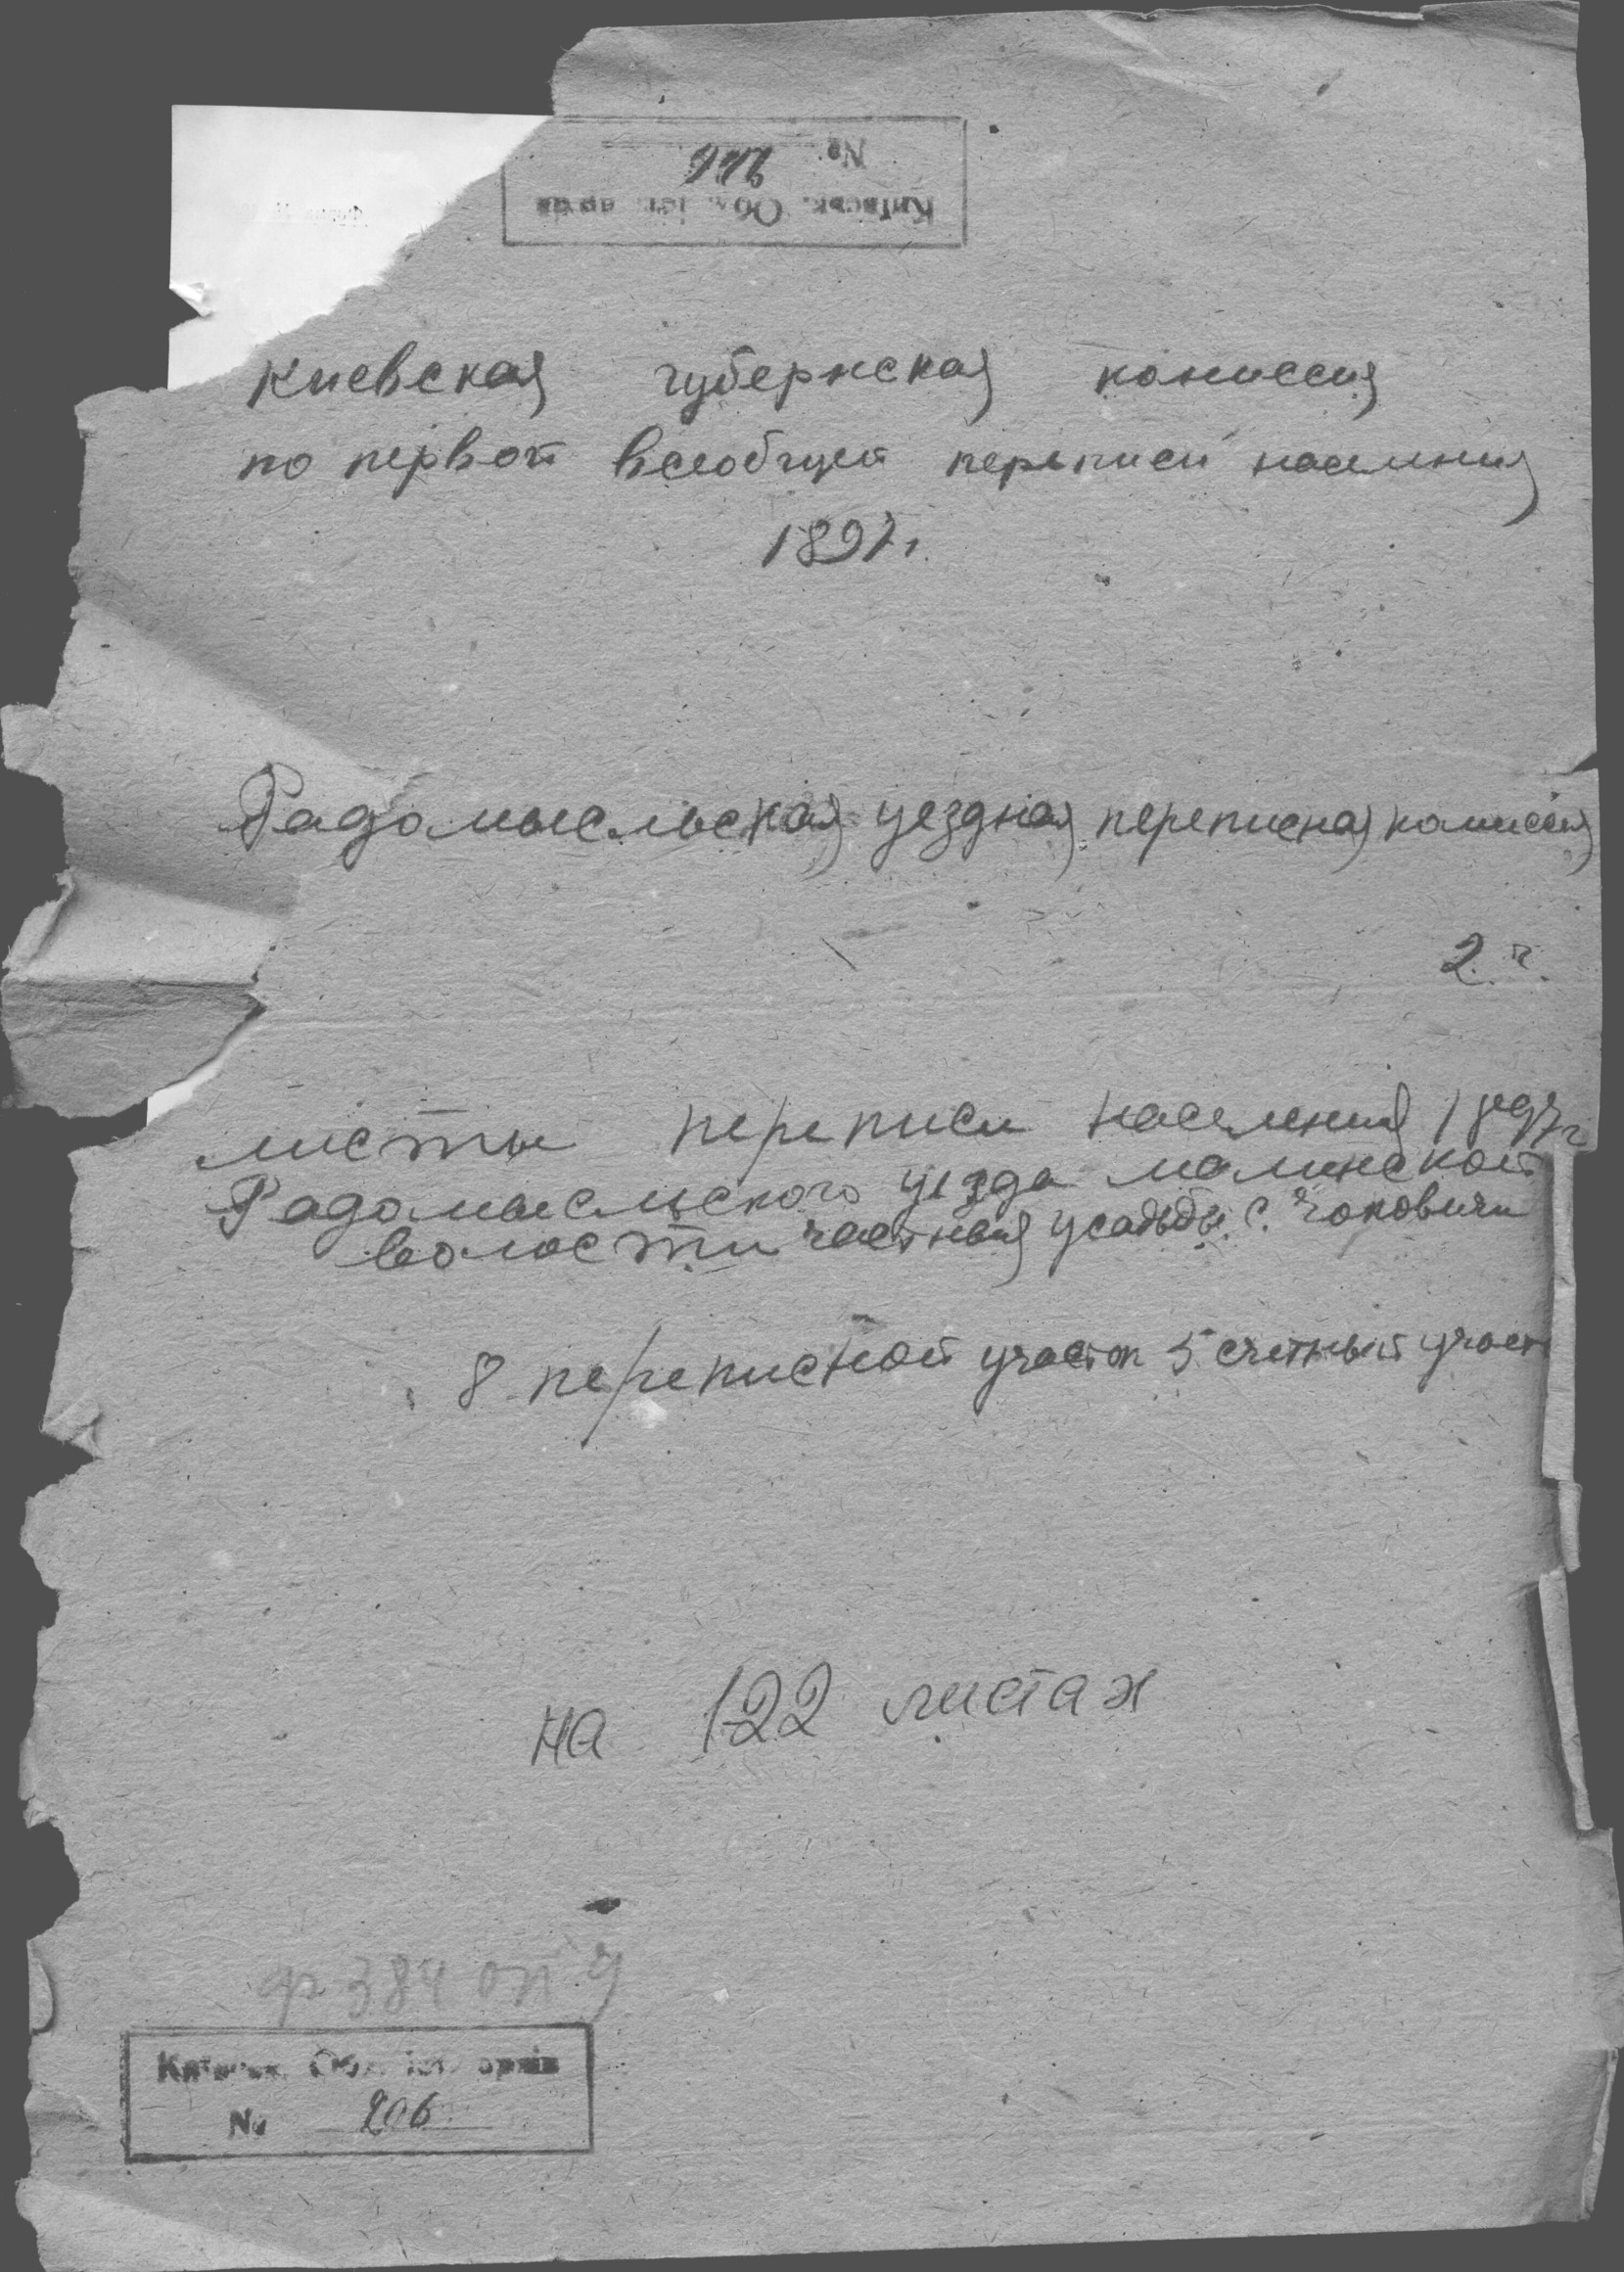 №
Київськ. Обл. іст. архів
Киевская губернская комиссия
по первой всеобщей переписи населения
1897 г.
Радомысльская уездная переписная комиссия
2.
листы переписи населения 1897 г
Радомысльского уезда малинской
волости частная усадьбы с. Чоповичи
8 переписной участок 5 счетный участ
на 122 листах
ф 384 оп 9
Київськ. Обл. іст. архів
№ 206